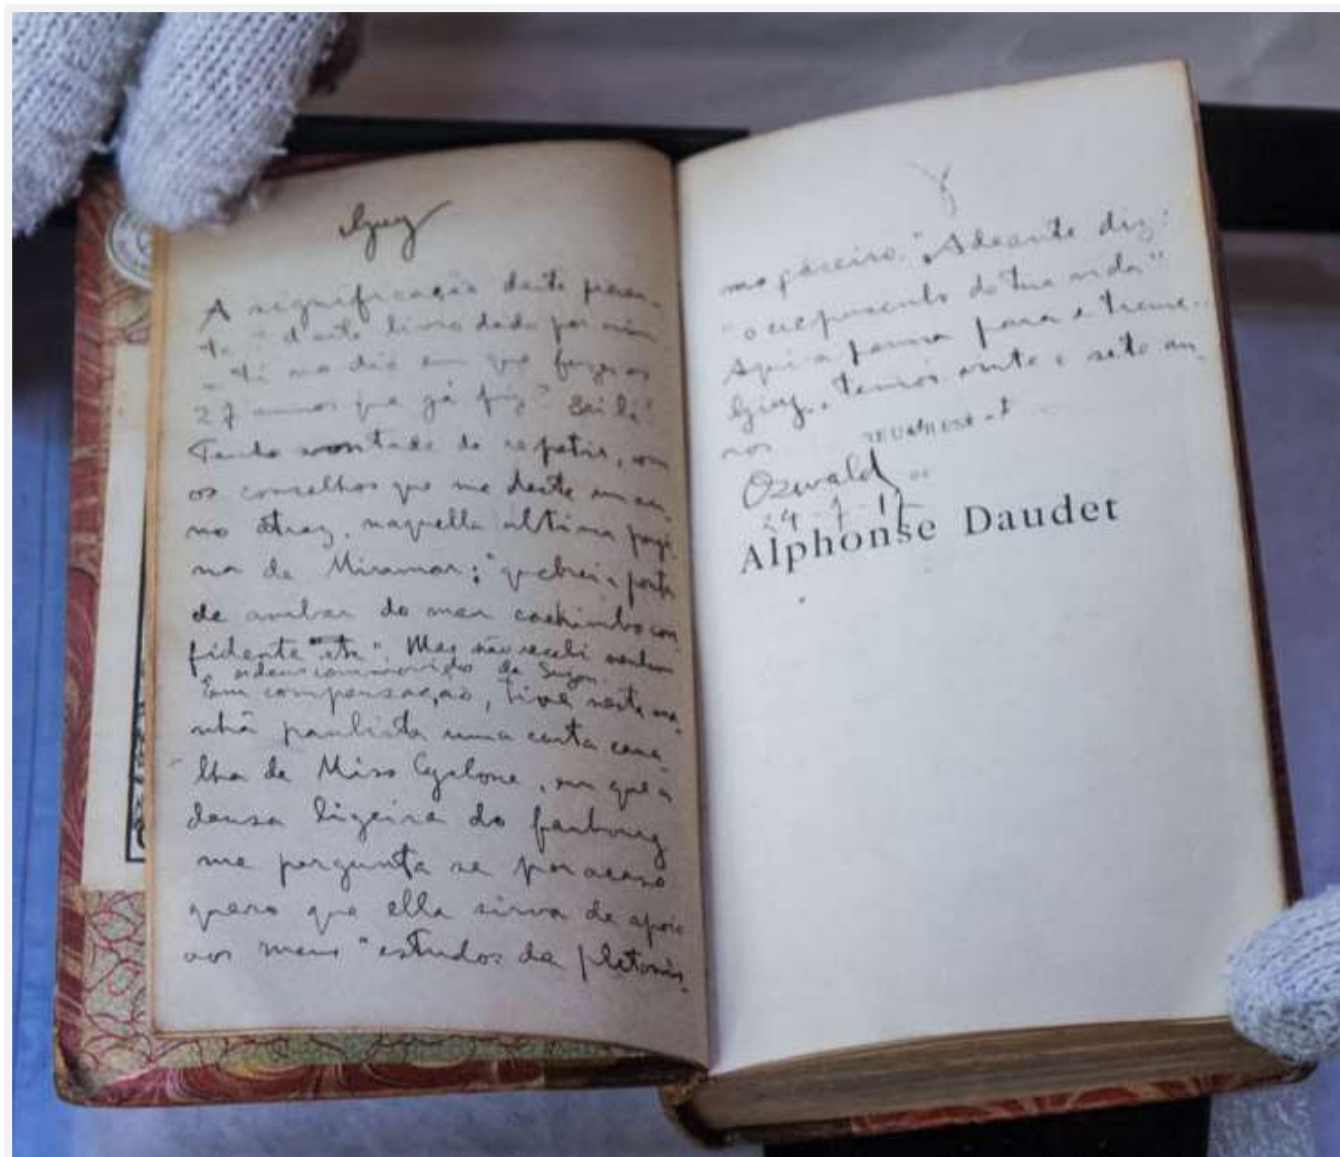 Guy
A significação deste presen-
te - d'este livro dado por mim
a ti no dia em que fazes os
27 annos que já fiz? Sei lá!
Tenho vontade de repetir, com
os conselhos que me deste um an-
no atraz, naquella ultima pagi-
na de Miramar: "quebrei a ponta
de ambar do meu cachimbo con
fidente" etc". Mas não recebi nenhum
adeus commovido de Suzon.
Em compensação, tive nesta ma-
nhã paulista uma carta cana-
lha de Miss Cyclone, em que a
deusa ligeira do faubourg
me pergunta se por acaso
quero que ella sirva de apoio
aos meus "estudos de platonis-
mo faceiro." Adeante diz:
"o crepusculo da tua vida"
Aqui a penna para e treme..
Guy, temos vinte e sete an-
nos
Oswald
24-7-17
Alphonse Daudet